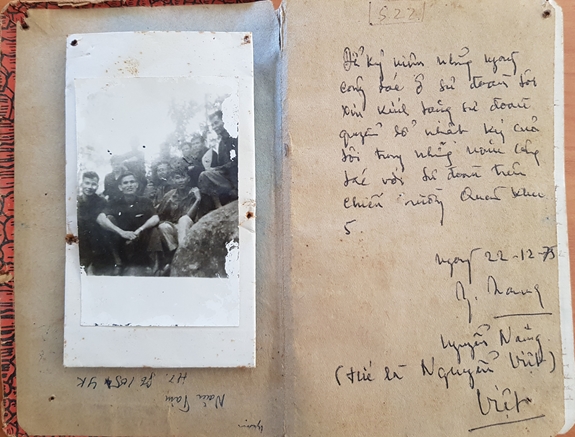 [522]
Để kỷ niệm những ngày
công tác ở sư đoàn tôi
xin kính tặng sư đoàn
quyển sổ nhật ký của
tôi trong những năm công
tác với sư đoàn trên
chiến trường Quân khu
5.
ngày 22-12-75
Nguyễn Năng
(tức là Nguyễn Việt)
Việt
Năm